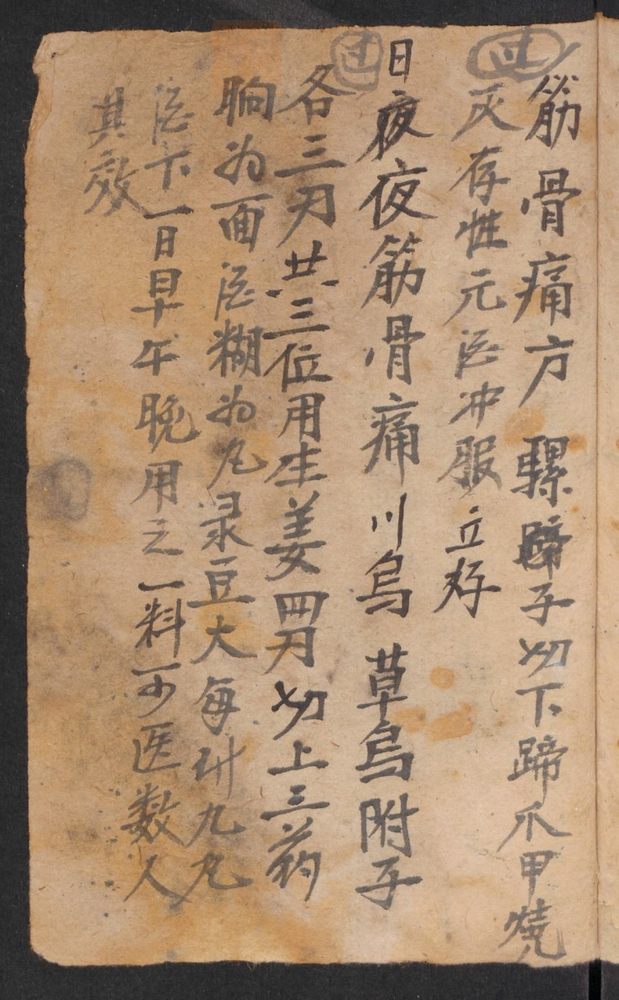 筋骨痛方 騾蹄子切下蹄爪甲燒
灰存性元酒冲服立好
日夜夜筋骨痛川烏草烏附子
各三刃共三位用生姜四刃切上三药
晌为面酒糊为丸录豆大每卅九丸
酒下一日早午晚用之一料可医数人
其效